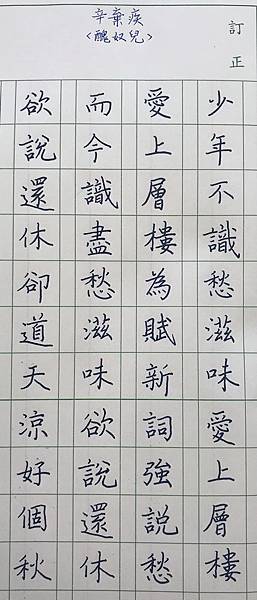 訂正
辛棄疾
<醜奴兒>
少年不識愁滋味愛上層樓
愛上層樓為賦新詞強說愁
而今識盡愁滋味欲說還休
欲說還休卻道天涼好個秋